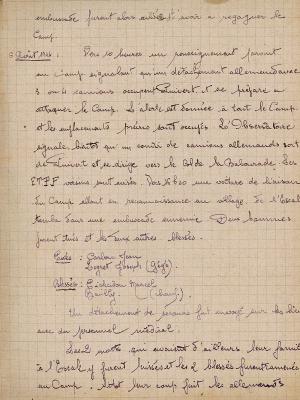 embuscade furent alors de regagner le
Camp.
Août 1944 : Vers 10 heures un renseignement parvint
au Camp signalant qu'un détachement allemand avec
3 ou 4 camions occupent et se prépare à
attaquer le Camp. L'alerte est donnée à tout le Camp
et les emplacements prévus sont occupés. L'Observatoire
signale bientôt qu'un convoi de camions allemands sort
de et se dirige vers le Col de la Balussade. Les
FTPF voisins sont avisés. Vers 16h00 une voiture de liaison
du Camp allant en reconnaissance au village de l'Escal
tomba dans une embuscade ennemie. Deux hommes
furent tués et les deux autres blessés.
Tués : Jean
Joseph
Blessés : Marcel
Un détachement de secours fut envoyé sur les lieux
avec du personnel médical.
Les 2 morts qui avaient d'ailleurs leur famille
à l'Escal y furent laissés et les 2 blessés furent ramenés
au Camp : leur coup fait les allemands